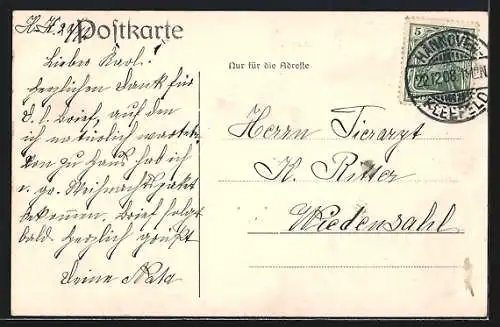 Postkarte
Lieber Karl.
Herzlichen Dank für
d. l. Brief, auf den
ich natürlich warte.
Von zu Haus hab ich
e. gr. Weihnachtspaket
bekommen. Brief folgt
bald. Herzlich grüßt
Deine
Nur für die Adresse
5
HANNOVER
22.12.08
KLEEFELD
Herrn Tierarzt
K. Ritter
Wiedensahl